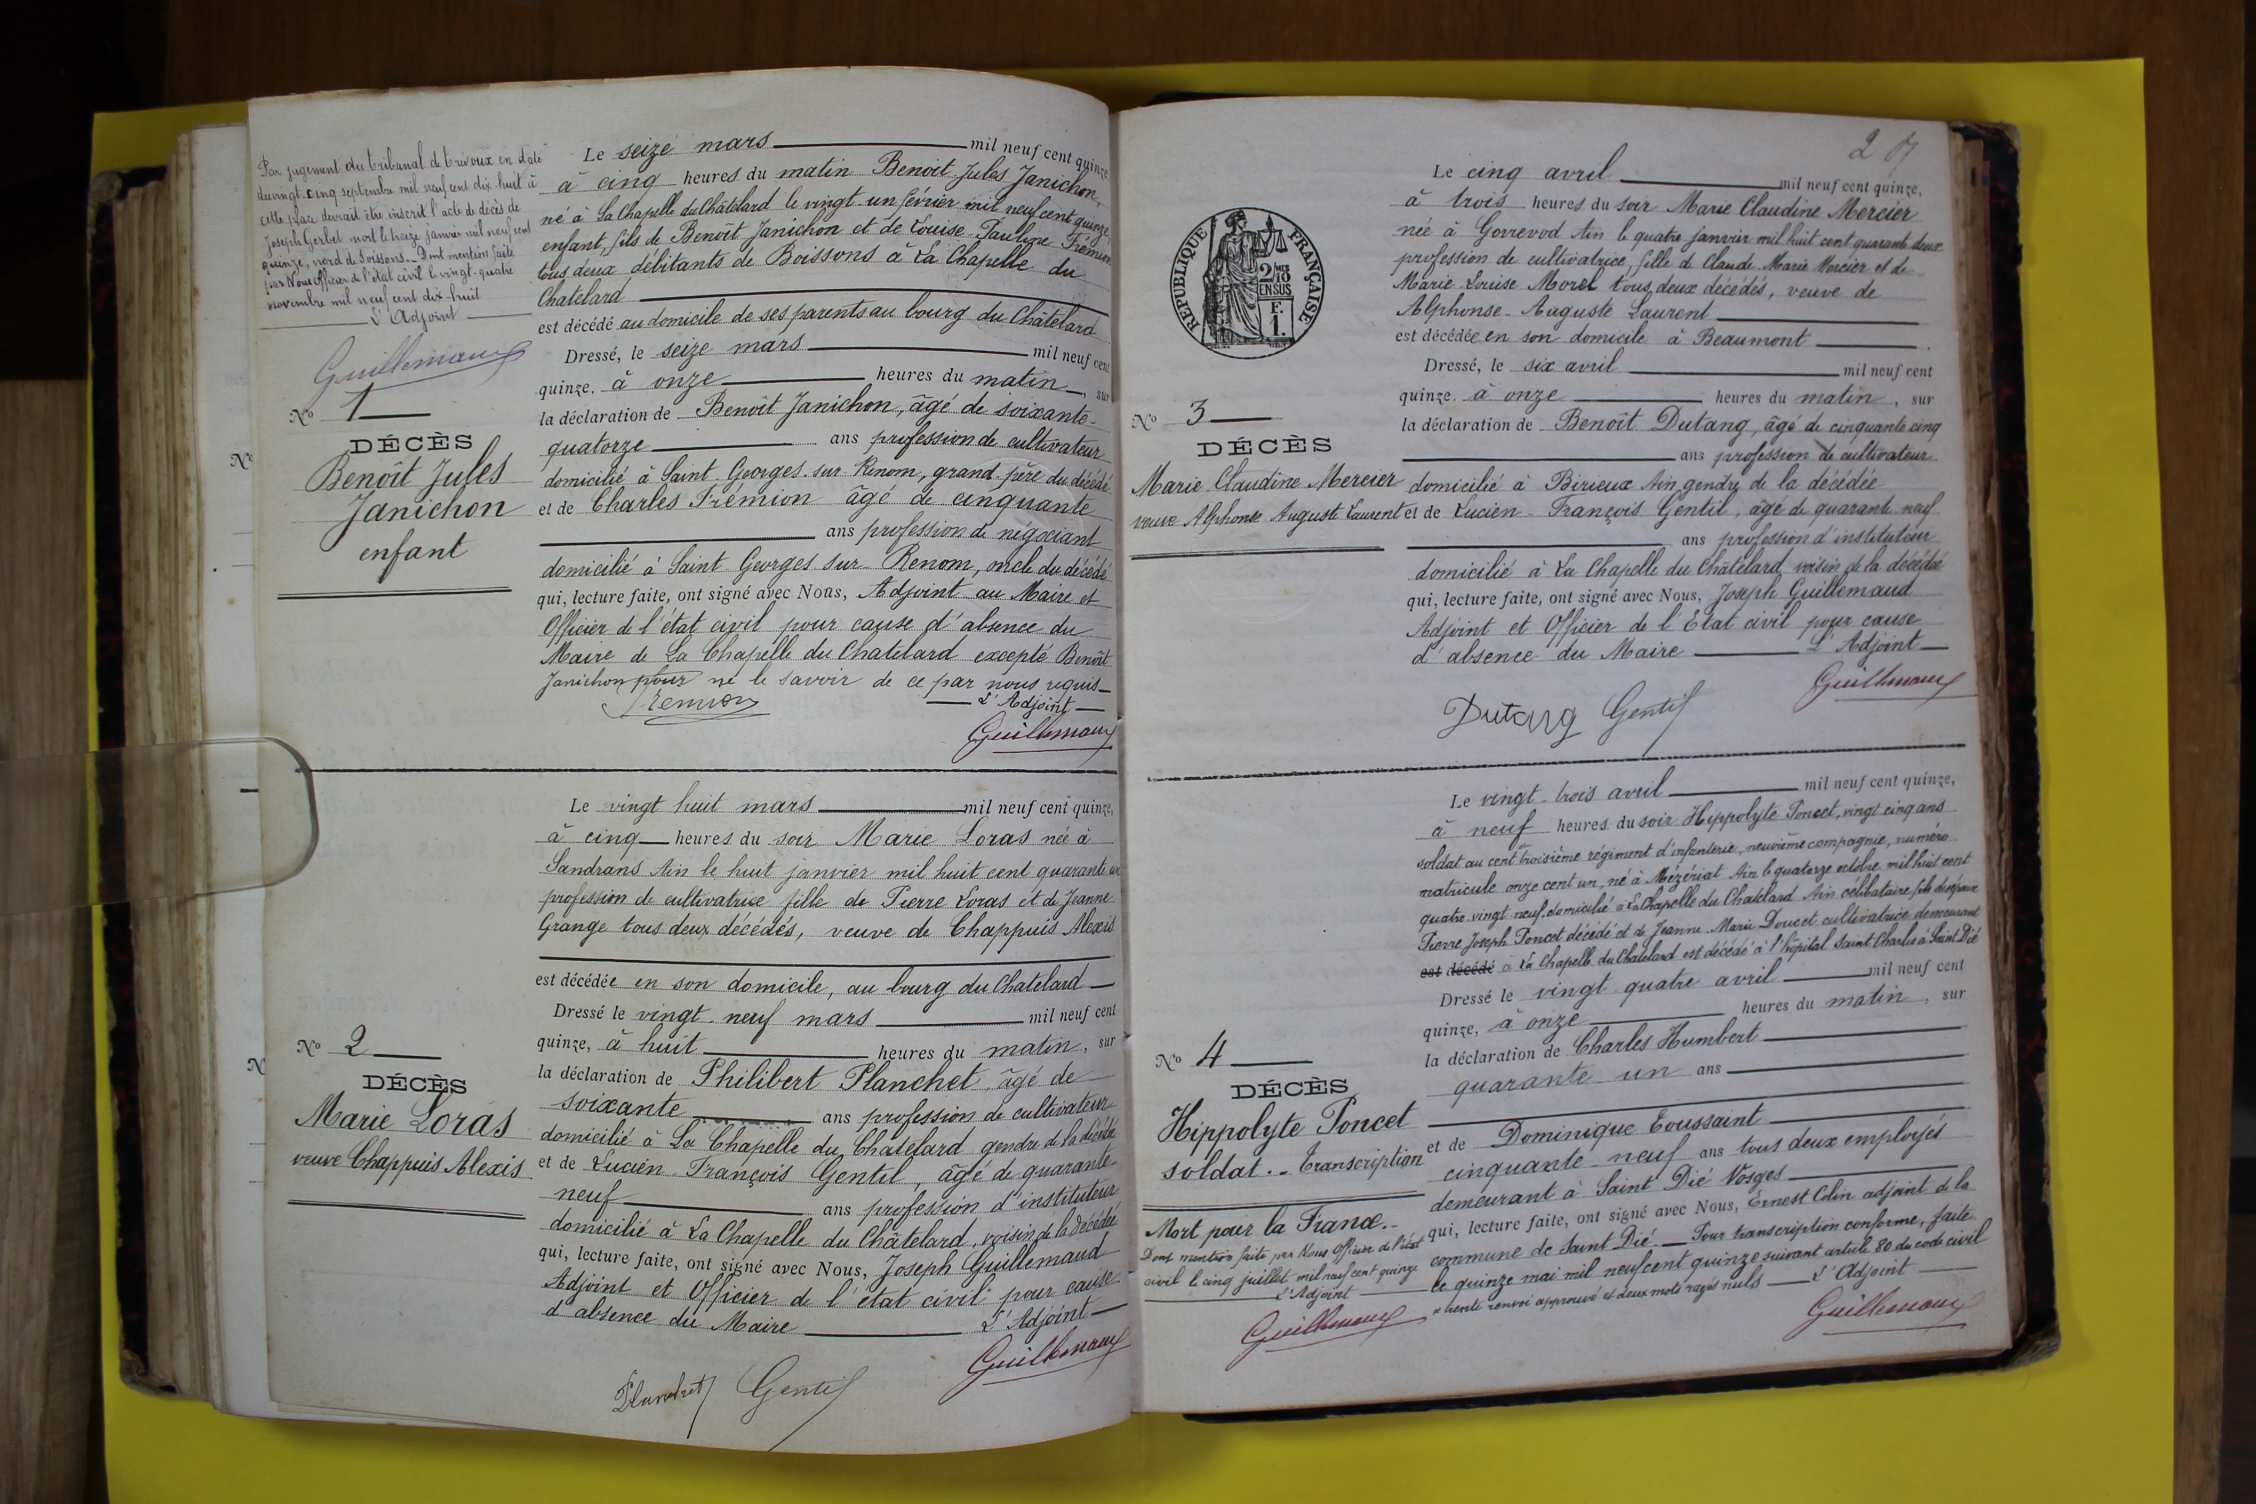 Par jugement du tribunal de Trévoux en date
du vingt cinq septembre mil neuf cent dix huit à
cette place devrait être inscrit l'acte de décès de
Joseph Gerbet mort le treize janvier mil neuf cent
quinze, nord de Soissons. - Dont mention faite
par Nous Officier de l'état civil le vingt-quatre
novembre mil neuf cent dix-huit
L'Adjoint
Guillemaud
Nº 1
DÉCÈS
Benoît Jules
Janichon
enfant
Le seize mars mil neuf cent quinze,
à cinq heures du matin Benoit Jules Janichon,
né à La Chapelle du Châtelard le vingt un février mil neuf cent quinze,
enfant, fils de Benoit Janichon et de Louise Frémion
tous deux débitants de Boissons à La Chapelle du
Chatelard
est décédé au domicile de ses parents au bourg du Châtelard
Dressé, le seize mars mil neuf cent
quinze. à onze heures du matin, sur
la déclaration de Benoît Janichon, âgé de soixante-
quatorze ans profession de cultivateur
domicilié à Saint Georges sur Renom, grand-père du décédé
et de Charles Frémion âgé de cinquante
ans profession de négociant
domicilié à Saint Georges sur Renom, oncle du décédé
qui, lecture faite, ont signé avec Nous, Adjoint au Maire et
Officier de l'état civil pour cause d'absence du
Maire de La Chapelle du Chatelard excepté Benoît
Janichon pour ne le savoir de ce par nous requis
L'Adjoint
Fremion
Guillemaud
Nº 2
DÉCÈS
Marie Loras
veuve Chappuis Alexis
Le vingt huit mars mil neuf cent quinze,
à cinq heures du soir Marie Loras née à
Sandrans Ain le huit janvier mil huit cent quarante un
profession de cultivatrice fille de Pierre Loras et de Jeanne
Grange tous deux décédés, veuve de Chappuis Alexis
est décédée en son domicile, au bourg du Chatelard
Dressé le vingt-neuf mars mil neuf cent
quinze, à huit heures du matin, sur
la déclaration de Philibert Planchet, âgé de
soixante ans profession de cultivateur
domicilié à La Chapelle du Chatelard gendre de la décédée
et de Lucien-François Gentil, âgé de quarante-
neuf ans profession d'instituteur
domicilié à La Chapelle du Châtelard, voisin de la décédée
qui, lecture faite, ont signé avec Nous, Joseph Guillemaud
Adjoint et Officier de l'état civil pour cause
d'absence du Maire L'Adjoint
Planchet Gentil Guillemaud
RÉPUBLIQUE FRANÇAISE
2/10
EN SUS
F.
1.
2
Nº 3
DÉCÈS
Marie Claudine Mercier
veuve Alphonse Auguste Laurent
Le cinq avril mil neuf cent quinze,
à trois heures du soir Marie Claudine Mercier
née à Gorrevod Ain le quatre janvier mil huit cent quarante deux
profession de cultivatrice, fille de Claude Marie Mercier et de
Marie-Louise Morel tous deux décédés, veuve de
Alphonse-Auguste Laurent
est décédée en son domicile à Beaumont
Dressé, le six avril mil neuf cent
quinze. à onze heures du matin, sur
la déclaration de Benoît Dutang, âgé de cinquante cinq
ans profession de cultivateur
domicilié à Birieux Ain gendre de la décédée
et de Lucien-François Gentil, âgé de quarante-neuf
ans profession d'instituteur
domicilié à La Chapelle du Châtelard, voisin de la décédée
qui, lecture faite, ont signé avec Nous, Joseph Guillemaud
Adjoint et Officier de l'Etat civil pour cause
d'absence du Maire L'Adjoint
Dutang Gentil Guillemaud
Nº 4
DÉCÈS
Hippolyte Poncet
soldat. - Transcription
Mort pour la France. -
Dont mention faite par Nous Officier de l'état
civil le cinq juillet mil neuf cent quinze
L'Adjoint
Guillemaud
Le vingt-trois avril mil neuf cent quinze,
à neuf heures du soir Hippolyte Poncet, vingt cinq ans
soldat au cent troisième régiment d'infanterie, neuvième compagnie, numéro
matricule onze cent un, né à Mézériat Ain le quatorze octobre mil huit cent
quatre vingt neuf, domicilié à La Chapelle du Chatelard Ain célibataire fils de
Pierre Joseph Poncet décédé et de Jeanne-Marie Doucet cultivatrice demeurant
est décédé à La Chapelle du Châtelard est décédé à l'hôpital Saint Charles à Saint Dié
Dressé le vingt quatre avril mil neuf cent
quinze, à onze heures du matin, sur
la déclaration de Charles Humbert
quarante-un ans
et de Dominique Toussaint
cinquante-neuf ans tous deux employés
demeurant à Saint Dié Vosges
qui, lecture faite, ont signé avec Nous, Ernest Colin adjoint de la
commune de Saint Dié. Pour transcription conforme, faite
le quinze mai mil neuf cent quinze suivant article 80 du code civil
renvoi approuvé et deux mots rayés nuls L'Adjoint
Guillemaud